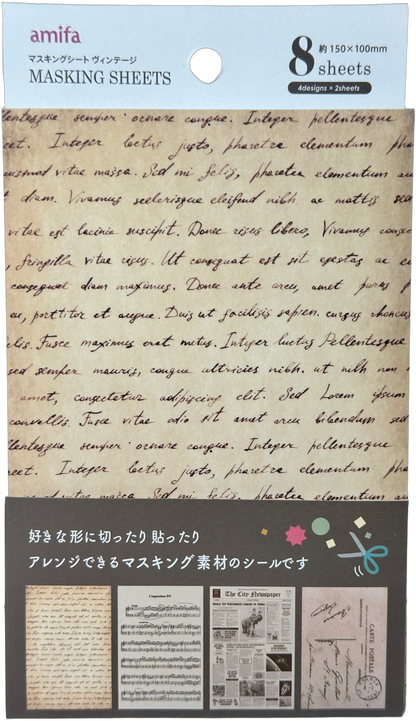 amifa
マスキングシート ヴィンテージ
MASKING SHEETS
8 sheets
約150×100mm
4designs × 2sheets
lentesque semper ornare congue. Integer pellentesque
eet. Integer lectus justo, pharetra elementum pha
euismod vitae massa. Sed mi felis, pharetra elementum au
t diam. Vivamus scelerisque eleifend nibh ac mattis sed
vitae est lacinia suscipit. Donec risus libero, Vivamus conse
, fringilla vitae risus. Ut consequat est sit egestas ac e
consequat diam maximus. Donec ante arcu, amet purus p
eu, porttitor et augue. Duis ut facilisis sapien. cursus rhoncus
elis. Fusce maximus erat metus. Integer luctus Pellentesque
sed semper mauris, congue ultricies nibh. ut nibh non
amet, consectetur adipiscing elit. Sed Lorem ipsum
convallis. Fusce vitae odio sit amet arcu bibendum sed
lentesque semper ornare congue. Integer pellentesque
eet. Integer lectus justo, pharetra elementum pha
vitae massa. Sed mi felis, pharetra elementum
好きな形に切ったり 貼ったり
アレンジできるマスキング素材のシールです
Composition Nº9
The City Newspaper
CARTE POSTALE